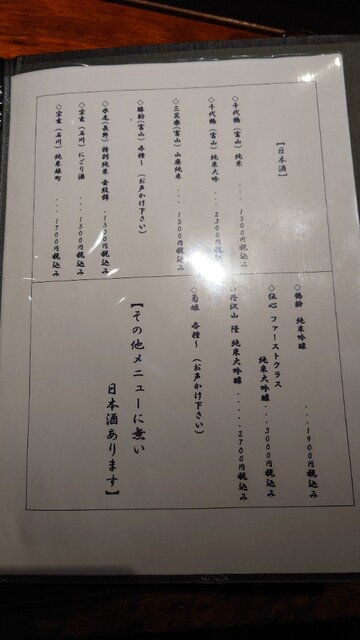 【日本酒】
◇千代鶴(富山) 純米 ...1500円税込み
◇千代鶴(富山) 純米大吟 ...2300円税込み
◇三笑楽(富山) 山廃純米 ...1500円税込み
◇勝駒(富山) 各種~ (お声かけ下さい)
◇水尾(長野) 特別純米 金紋錦 .1500円税込み
◇宗玄 (石川) にごり酒 ...1500円税込み
◇宗玄 (石川) 純米雄町 ...1700円税込み
◇鶴齢 純米吟醸 ...1900円税込み
◇伝心 ファーストクラス
純米大吟醸...3000円税込み
◇丹沢山 隆 純米大吟醸 .....2700円税込み
◇菊姫 各種~ (お声かけ下さい)
【その他メニューに無い
日本酒あります】